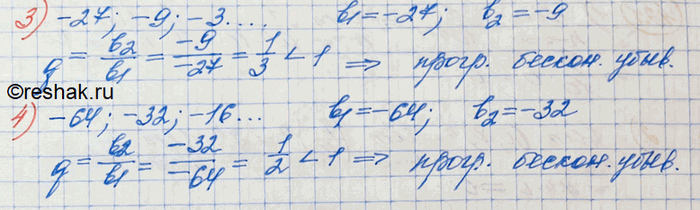 3) -27; -9; -3.... b₁=-27; b₂=-9
q = b₂/b₁ = -9/-27 = 1/3 < 1 ⇒ прогр. бескон. убыв.
©reshak.ru
4) -64; -32; -16... b₁=-64; b₂=-32
q = b₂/b₁ = -32/-64 = 1/2 < 1 ⇒ прогр. бескон. убыв.